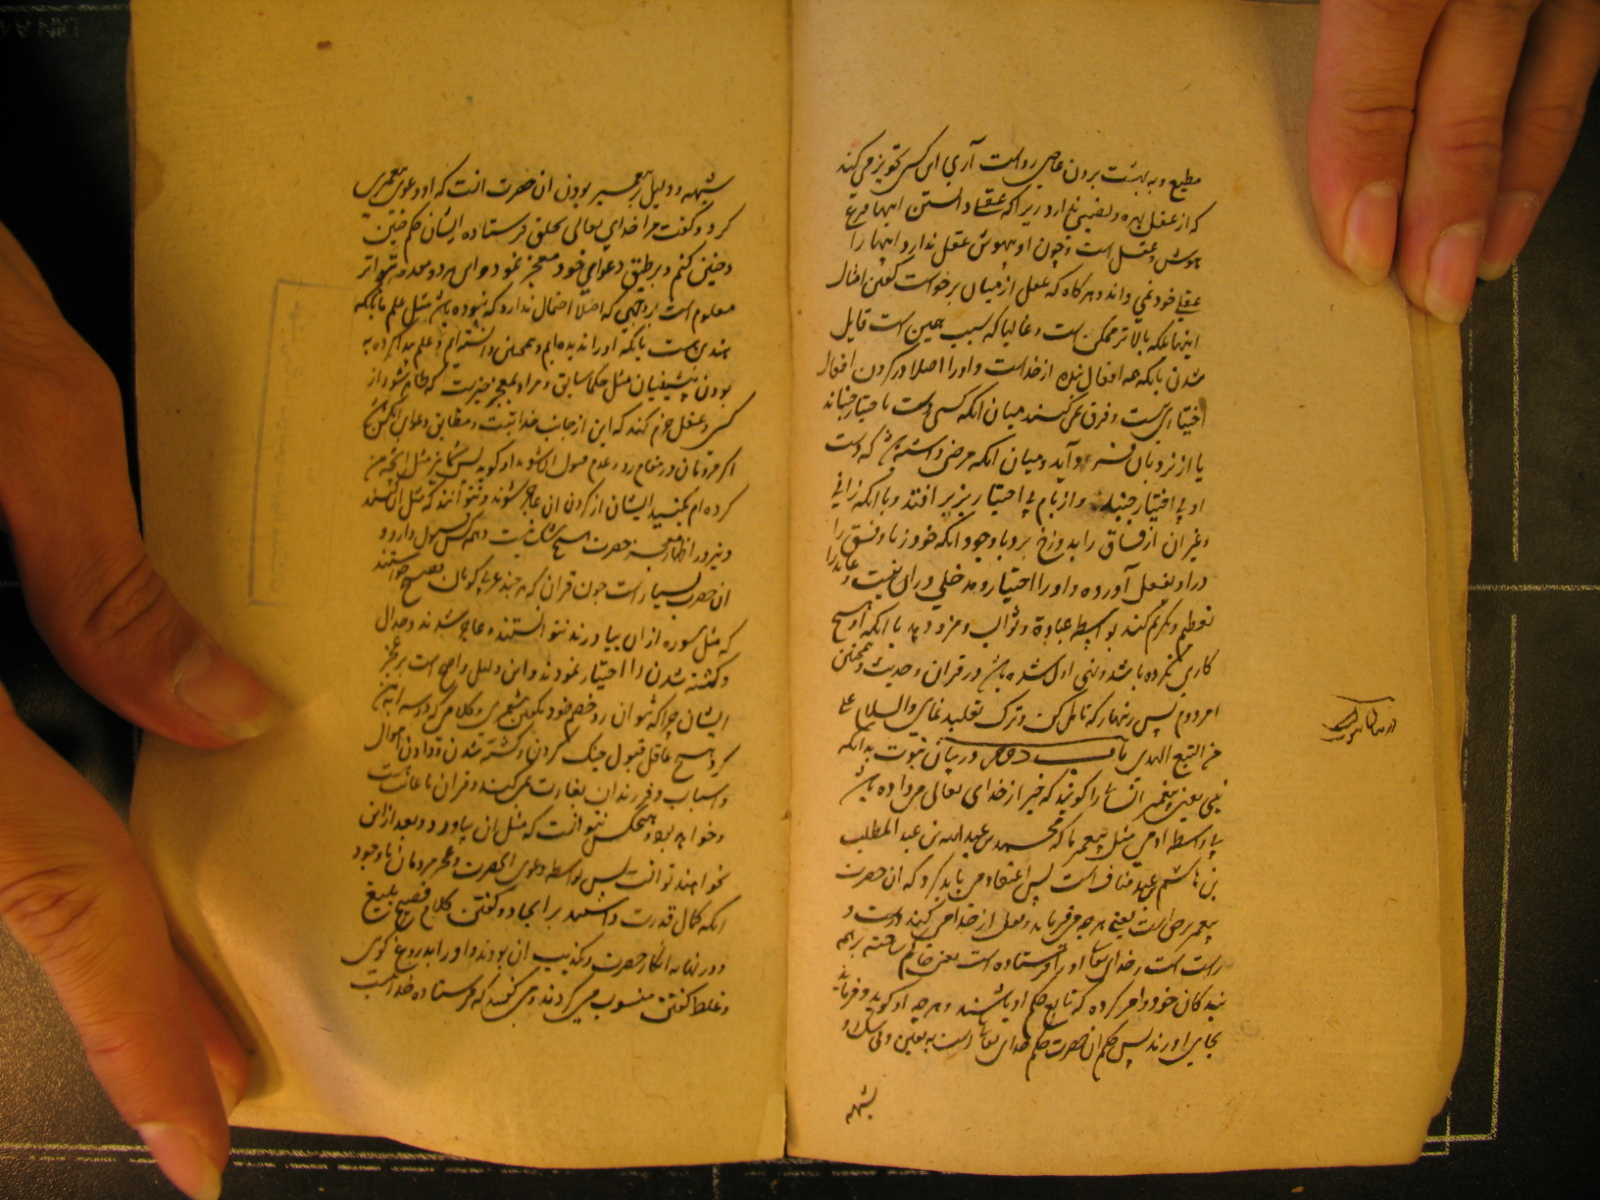 مطیع و به بهشت بردن عاصی رواست آری این کسی تجویز می کند
که از عقل بهره و نصیبی ندارد زیرا که عقلی دانستن اینها فرع
هوش و عقل است و چون او هوش و عقل ندارد اینها را
عقلی خود نمی داند و هرگاه که عقل از میان برخواست گفتن امثال
اینها بلکه بالاتر ممکن است و غالبا که سبب همین است قایل
شدن بانکه همه افعال بنده از خداست و او را اصلا در کردن افعال
اختیاری نیست و فرق نمی کنند میان انکه کسی دست باختیار جنباند
یا از نردبان فرود آید و میان انکه مرض داشته باشد که دست
او بی اختیار جنبد و از بام بی اختیار بزیر افتد و با انکه زانی
و غیر آن از فساق را به دوزخ برد با وجود انکه خود زنا و فسق را
در او بفعل آورده و او را اختیار و مدخلی در ان نیست و عابد را
تعظیم و تکریم کند بواسطه عبادة و ثواب و مزد دهد با انکه او هیچ
کاری نکرده باشد و نهی اول شده باشد در قرآن و حدیث و همچنین
امر دوم پس زنهار که تامل کن و ترک تقلید نمای والسلام علی
من اتبع الهدی باب دوم در بیان نبوت بدانکه
نبی یعنی پیغمبر انسانی را گویند که خبر از خدای تعالی می داده باشد
بی واسطه آدمی مثل پیغمبر ما که محمد بن عبد الله بن عبد المطلب
بن هاشم بن عبد مناف است پس اعتقاد می باید کرد که ان حضرت
پیغمبر برحق است یعنی هر چه می فرماید و نقل از خدا می کند درست و
راست است و خدای تعالی او را فرستاده است یعنی حاکم ساخته بر همه
بندکان خود و امر کرده که تابع حکم او باشند و هر چه او گوید و فرماید
بجای اورند پس حکم ان حضرت حکم خدای تعالی است به یقین و بی شک و
شبهه
در بیان نبوت
شبهه و دلیل بر پیغمبر بودن ان حضرت انست که او دعوی پیغمبری
کرد و گفت مرا خدای تعالی بخلق فرستاده و ایشان حکم چنین
و چنین کنم و بر طبق دعوای خود معجز نمود و این هر دو مقدمه بتواتر
معلوم است بر وجهی که اصلا احتمال ندارد که نبوده باشد مثل علم ما بانکه
هندی هست بانکه او را ندیده ایم و همچنین دانسته ایم و علم پیدا کرده به
بودن پیشینیان مثل حکما سابق و مراد بمعجز چیزیست که ظاهر شود از
کسی و عقل جزم کند که این از جانب خدا است و مطابق دعوای انکس باشد
اگر مردمان در مقام رد و عدم قبول ان شوند او گوید پس شما نیز مثل انچه من
کرده ام بکنید ایشان از کردن ان عاجز شوند و نتوانند که مثل ان کنند
و نیز در اظهار معجزه حضرت هیچ شک نیست و همه کس قبول دارد و
ان حضرت بسیار است چون قرآن که هر چند عرب که بان فصیح خواستند
که مثل سوره از ان بیاورند نتوانستند و عاجز شدند و جدال
و کشته شدن را اختیار نمودند و این دلیل واضح است بر عجز
ایشان چرا که تتوان رد خصم خود بگفتن شعری و کلامی که در سه این
کرد هیچ عاقل قبول جنک کردن و کشته شدن و دادن اموال
و اسباب و فرزندان بغارت نمی کند و قرآن تا غایت
و خواهد بود و هیچکس نتوانست که مثل ان بیاورد و بعد از این
نخواهند توانست پس بواسطه دعوی انحضرت و عجز مردمان با وجود
انکه کمال قدرت داشتند بر ایجاد و گفتن کلام فصیح بلیغ
و در نهایه انکار حضرت و تکذیب ان بودند و او را بدروغ گوی
و غلط گفتن منسوب می کردند و می گفتند که فرستاده خدا نیست